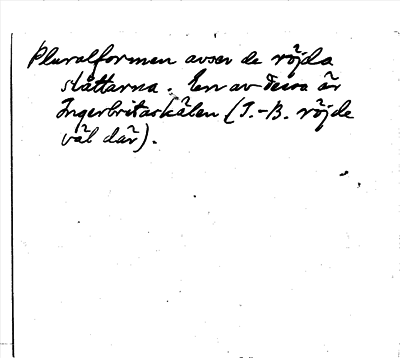 Pluralformen avser de röjda
slåttarna. En av dessa är
Ingerbritaskälen (I.-B. röjde
väl där).